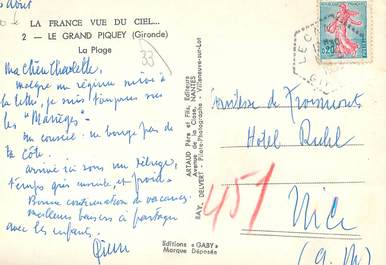 Août
LA FRANCE VUE DU CIEL...
2 - LE GRAND PIQUEY (Gironde)
La Plage
33
Ma chère
malgré un régime suivi à
la lettre, je suis toujours sur
les "Mariages" -
un conseil - ne bouge pas de
la Côte.
arrivé ici sous un déluge,
temps gris ensuite, et froid -
Bonne continuation de vacances
meilleurs baisers à partager
avec les enfants.
ARTAUD Père et Fils, Editeurs
Avenue de la Close, NANTES
RAY. DELVERT - Pilote-Photographe - Villeneuve-sur-Lot
Editions "GABY"
Marque Déposée
0,20
LE CA
Comtesse de
Hôtel Ruhl
451
Nice
(A. M)